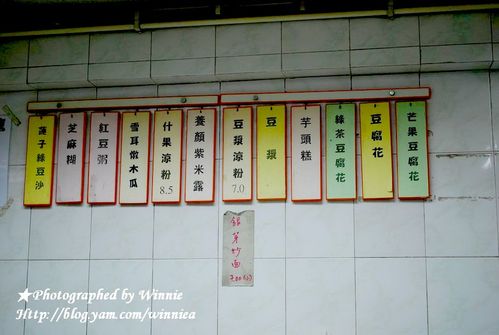 蓮子綠豆沙
芝麻糊
紅豆粥
雪耳燉木瓜
什果涼粉
8.5
養顏紫米露
豆漿涼粉
7.0
豆漿
芋頭糕
綠茶豆腐花
豆腐花
芒果豆腐花
銀芽炒面
★Photographed by Winnie
Http://blog.yam.com/winniea